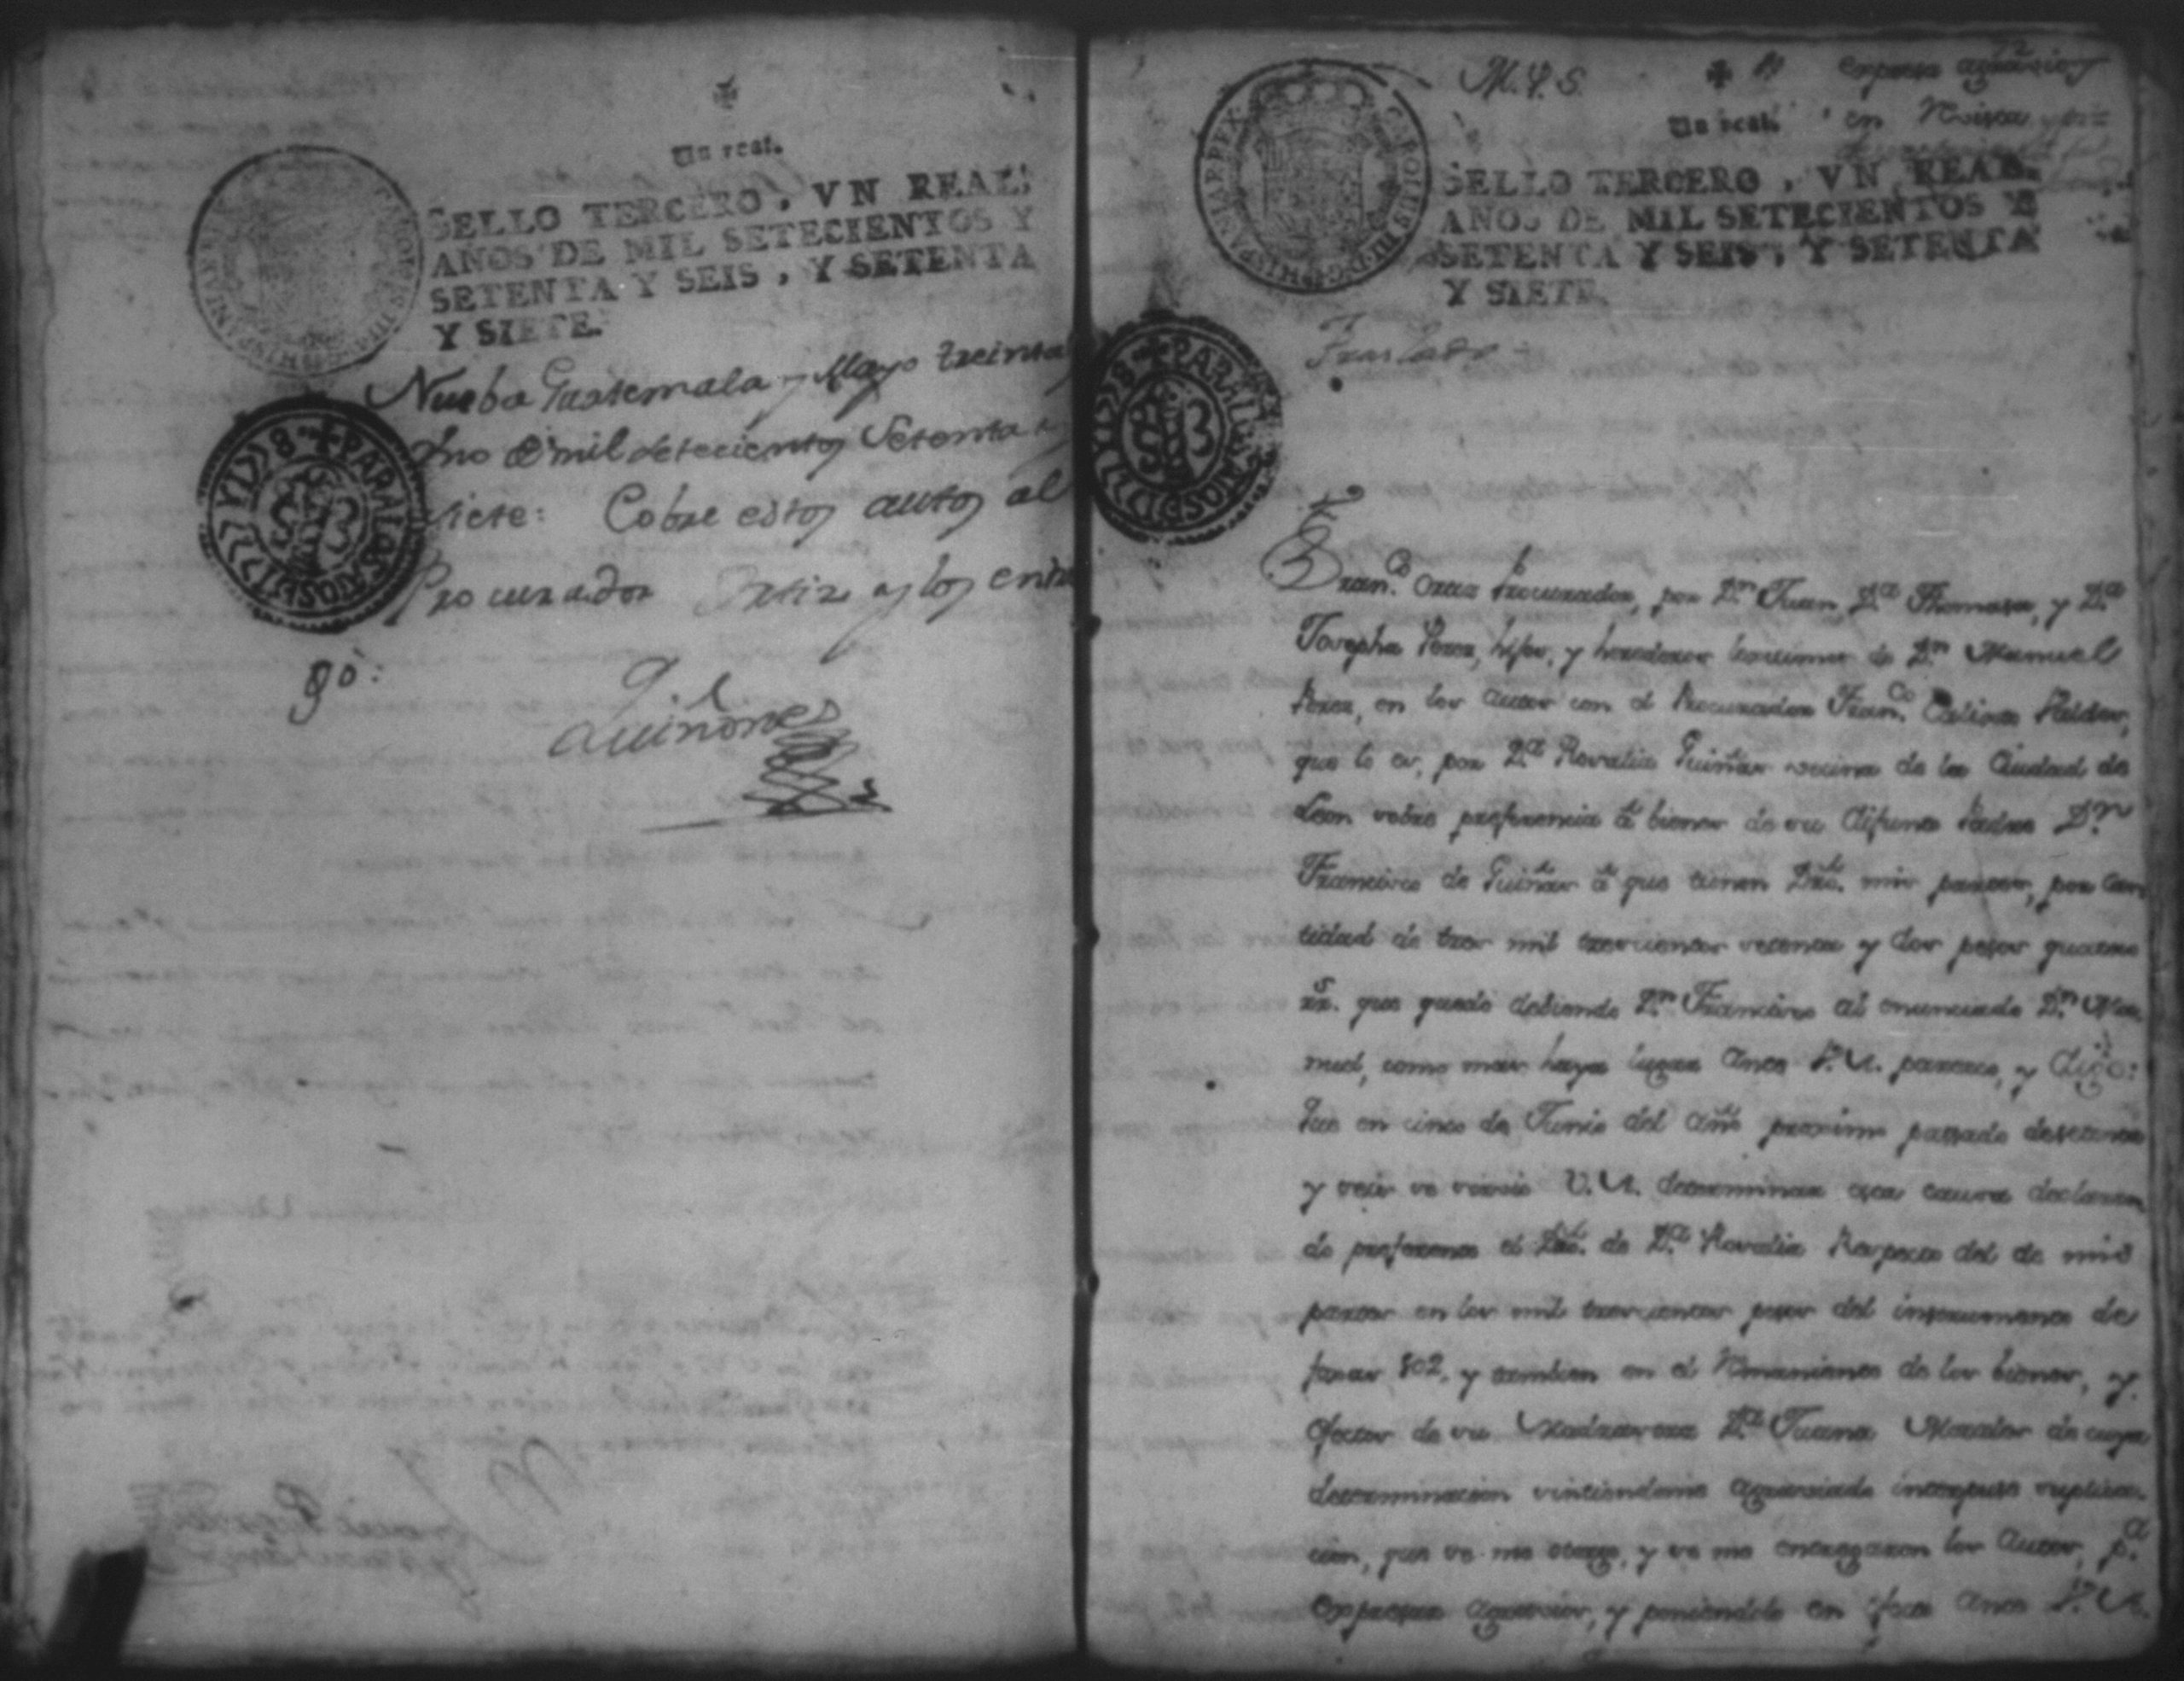 Un real.
SELLO TERCERO, VN REAL,
AÑOS DE MIL SETECIENTOS Y
SETENTA Y SEIS, Y SETENTA
Y SIETE.
PARA LOS AÑOS DE 1777 Y 1778
Nueba Guatemala y Mayo treinta
uno de mil setecientos Setenta y
siete: Cobre estos autos al
Procurador Ortiz y los entre
gò:
Quiñones
M. P. S.
expresa agravios
Un real.
en Revista y
SELLO TERCERO, VN REAL.
AÑOS DE MIL SETECIENTOS Y
SETENTA Y SEIS, Y SETENTA
Y SIETE.
CAROLUS III D G HISPANIAR REX
Traslado
PARA LOS AÑOS DE 1777 Y 1778
Fran.co Ortiz Procurador, por D.n Juan, D.a Thomasa, y D.a
Josepha Perez, hijos, y herederos lexitimos de D.n Manuel
Perez, en los autos con el Procurador Fran.co
que lo es, por D.a Rosalia Guiñas vecina de la Ciudad de
Leon sobre preferencia â bienes de su difunto Padre D.n
Francisco de Guiñas â que tienen Dro. mis partes, por can
tidad de tres mil trescientos setenta y dos pesos quatro
rr.s que quedó debiendo D.n Francisco al enunciado D.n Ma
nuel, como mas haya lugar ante V. A. parezco, y Digo:
Que en cinco de Junio del año proximo passado de setenta
y seis se sirvió V. A. determinar esta causa declaran
do preferente el Dro. de D.a Rosalia Respecto del de mis
partes en los mil trescientos pesos del instrumento de
foxas 102, y tambien en el Remaniente de los bienes, y
efectos de su Madrastra D.a Juana Morales de cuya
determinacion sintiendome agraviado interpuse suplica
cion, que se me otorgó, y se me entregaron los Autos, p.a
expressar agravios, y poniendolo en ante V. A.